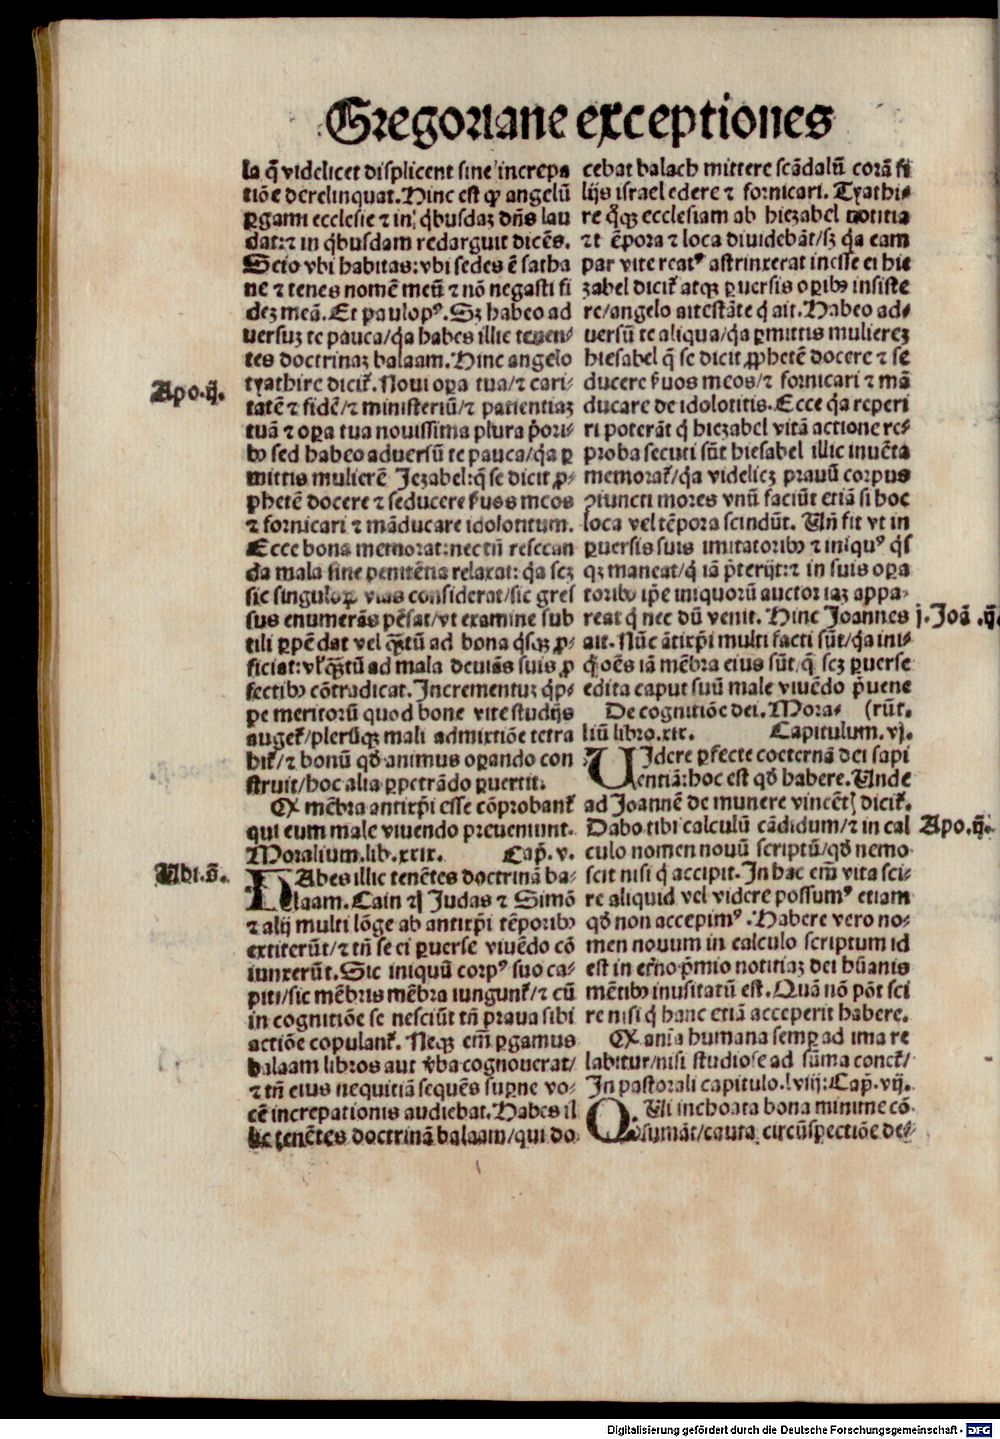 Gregoriane exceptiones
la q̄ videlicet displicent sine increpa
tiōe derelinquat. Hinc est ꝙ angelū
ꝑgami ecclesie ⁊ in qͥbusdaꝫ dn̄s lau
dat:⁊ in qͥbusdam redarguit dicēs.
Scio vbi habitas: vbi sedes ē satha
ne ⁊ tenes nomē meū ⁊ nō negasti fi
deꝫ meā. Et paulopꝰ. Sꝫ habeo ad
versuꝫ te pauca/qͥa habes illic tenen-
tes doctrinaꝫ balaam. Hinc angelo
tyathire dicit̉. Noui oꝑa tua/⁊ cari-
Apo.ij.
tatē ⁊ fidē/⁊ ministeriū/⁊ patientiaꝫ
tuā ⁊ oꝑa tua nouissima plura p̄ori-
bꝰ sed habeo adversū te pauca/qͥa ꝑ
mittis mulierē Jezabel: q̄ se dicit ꝓ-
phetē docere ⁊ seducere ẜuos meos
⁊ fornicari ⁊ māducare idolotitum.
Ecce bona memorat: nec tn̄ resecan
da mala sine penitētia relaxat: qͥa scꝫ
sic singuloꝝ vias considerat/sic gres
sus enumerās pēsat/vt examine sub
tili ꝑpēdat vel qͣꝫtū ad bona qͥsqꝫ ꝓ-
ficiat: vl̉ qͣꝫtū ad mala deuiās suis ꝓ
fectibꝰ cōtradicat. Incrementuꝫ qͥp-
pe meritorū quod bone vite studijs
auget̉/plerūqꝫ mali admixtiōe tetra
hit̉/⁊ bonū qḋ animus oꝑando con
struit/hoc alia ꝑpetrādo ꝑuertit.
Ex mēbra antixp̄i esse cōprobant̉
qui eum male viuendo preueniunt.
Moralium.lib.xxix. Cap̄. v.
Vbi.s̄.
HAbes illic tenētes doctrinā ba-
laam. Cain Judas ⁊ Simō
⁊ alij multi lōge ab antixp̄i tēporibꝰ
extiterūt/⁊ tn̄ se ei ꝑuerse viuēdo cō
iunxerūt. Sic iniquū corpꝰ suo ca-
piti/sic mēbris mēbra iungunt̉/⁊ cū
in cognitiōe se nesciūt tn̄ praua sibi
actiōe copulant̉. Neqꝫ em̄ ꝑgamus
balaam libros aut v̉ba cognouerat/
⁊ tn̄ eius nequitiā sequēs suꝑne vo-
cē increpationis audiebat. Habes il
lic tenētes doctrinā balaam/qui do
cebat balach mittere scādalū corā fi
lijs israel edere ⁊ fornicari. Tyathi-
re qͦqꝫ ecclesiam ab hiezabel notitia
⁊t ēpora ⁊ loca diuidebāt/sꝫ qͥa eam
par vite reatꝰ astrinxerat inesse ei hie
zabel dicit̉ atqꝫ ꝑuersis oꝑibꝰ insiste
re/angelo attestāte qͥ ait. Habeo ad-
versū te aliqua/qͥa ꝑmittis muliereꝫ
hiesabel q̄ se dicit ꝓphetē docere ⁊ se
ducere ẜuos meos/⁊ fornicari ⁊ mā
ducare de idolotitis. Ecce qͥa reperi
ri poterāt qͥ hiezabel vitā actione re-
proba secuti sūt hiesabel illic inuēta
memorat̉/qͥa videlicꝫ prauū corpus
ꝯiuncti mores vnū faciūt etiā si hoc
loca vel tēpora scindūt. Vn̄ fit vt in
ꝑuersis suis imitatoribꝰ ⁊ iniquꝰ qͥs
qꝫ maneat/qͥ iā p̄terijt: ⁊ in suis oꝑa
toribꝰ ip̄e iniquorū auctor iaꝫ appa-
reat qͥ nec dū venit. Hinc Joannes
j. Joā.ij.
ait. Nūc ātixp̄i multi facti sūt/qͥa ini-
qͥ oēs iā mēbra eius sūt/q̄ scꝫ ꝑuerse
edita caput suū male viuēdo p̄uene
(rūt.
De cognitiōe dei. Mora-
liū libro.xix. Capitulum.vj.
VIdere ꝑfecte coeternā dei sapi
entiā: hoc est qḋ habere. Unde
ad Joannē de munere vincēt̉ dicit̉.
Dabo tibi calculū cādidum/⁊ in cal
Apo.ij.
culo nomen nouū scriptū/qḋ nemo
scit nisi qͥ accipit. In hac em̄ vita sci-
re aliquid vel videre possumꝰ etiam
qḋ non accepimꝰ. Habere vero no-
men nouum in calculo scriptum id
est in et̉no p̄mio notitiaꝫ dei hūanis
mētibꝰ inusitatū est. Quā nō pōt sci
re nisi qͥ hanc etiā acceperit habere.
Ex anīa humana semꝑ ad ima re
labitur/nisi studiose ad sūma conet̉/
In pastorali capitulo.lviij: Cap̄. vij.
QUi inchoata bona minime cō
sumāt/cauta circūspectiōe de-